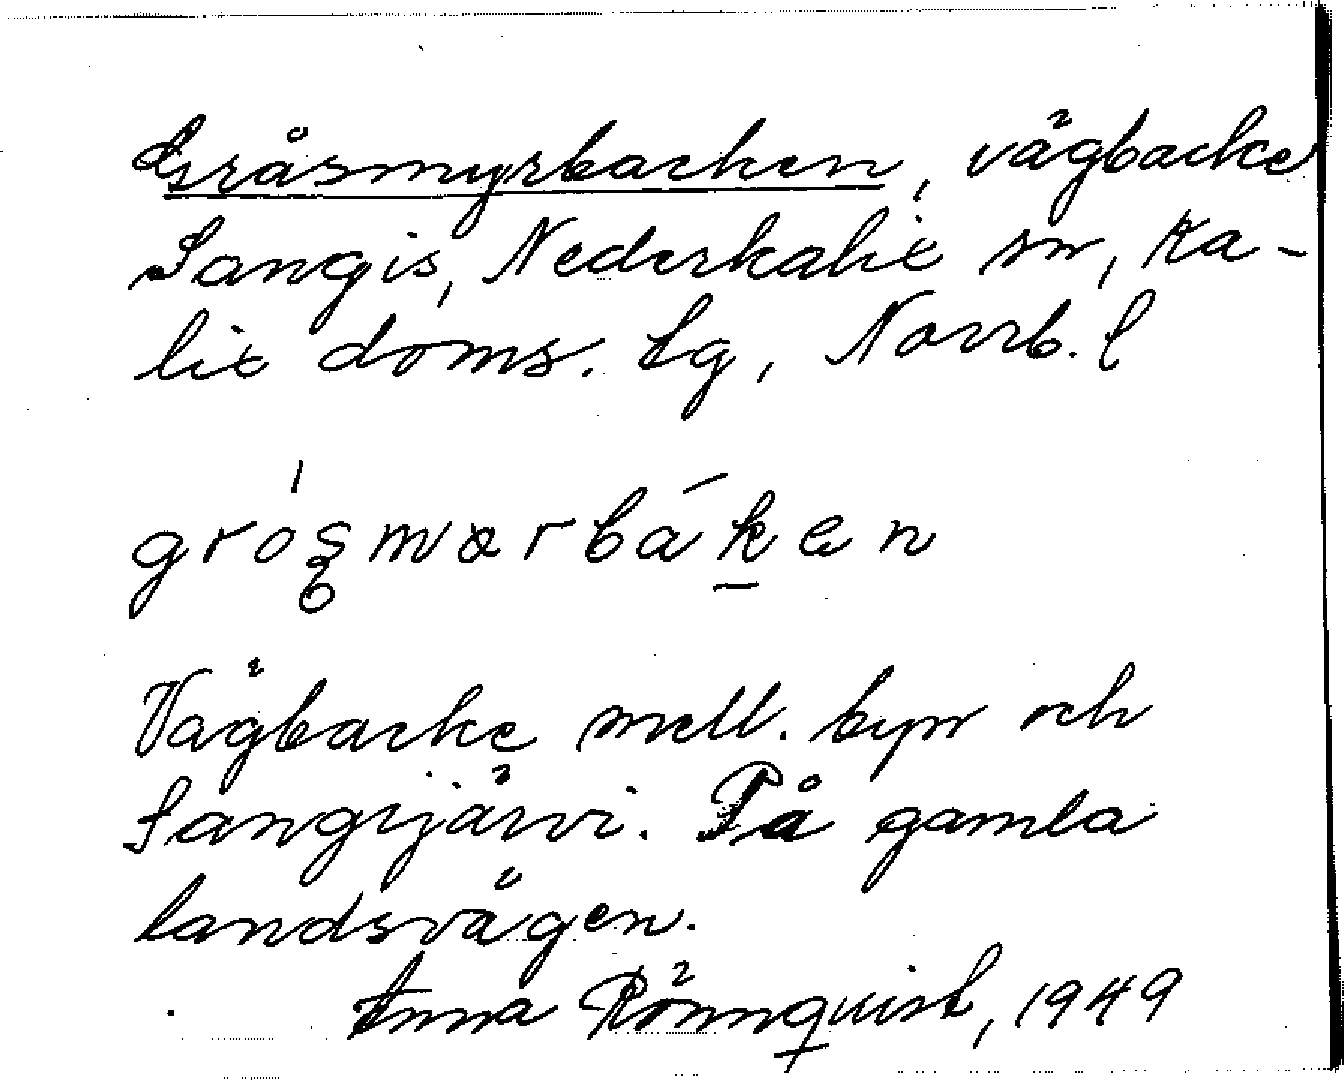 Gråsmyrbacken, vägbacke
Sangis, Nederkalix sn, Ka-
lix doms. Lg, Norrb. l
grósmørbáken
Vägbacke mell. byn och
Sangijärvi. På gamla
landsvägen.
Anna Rönnquist, 1949